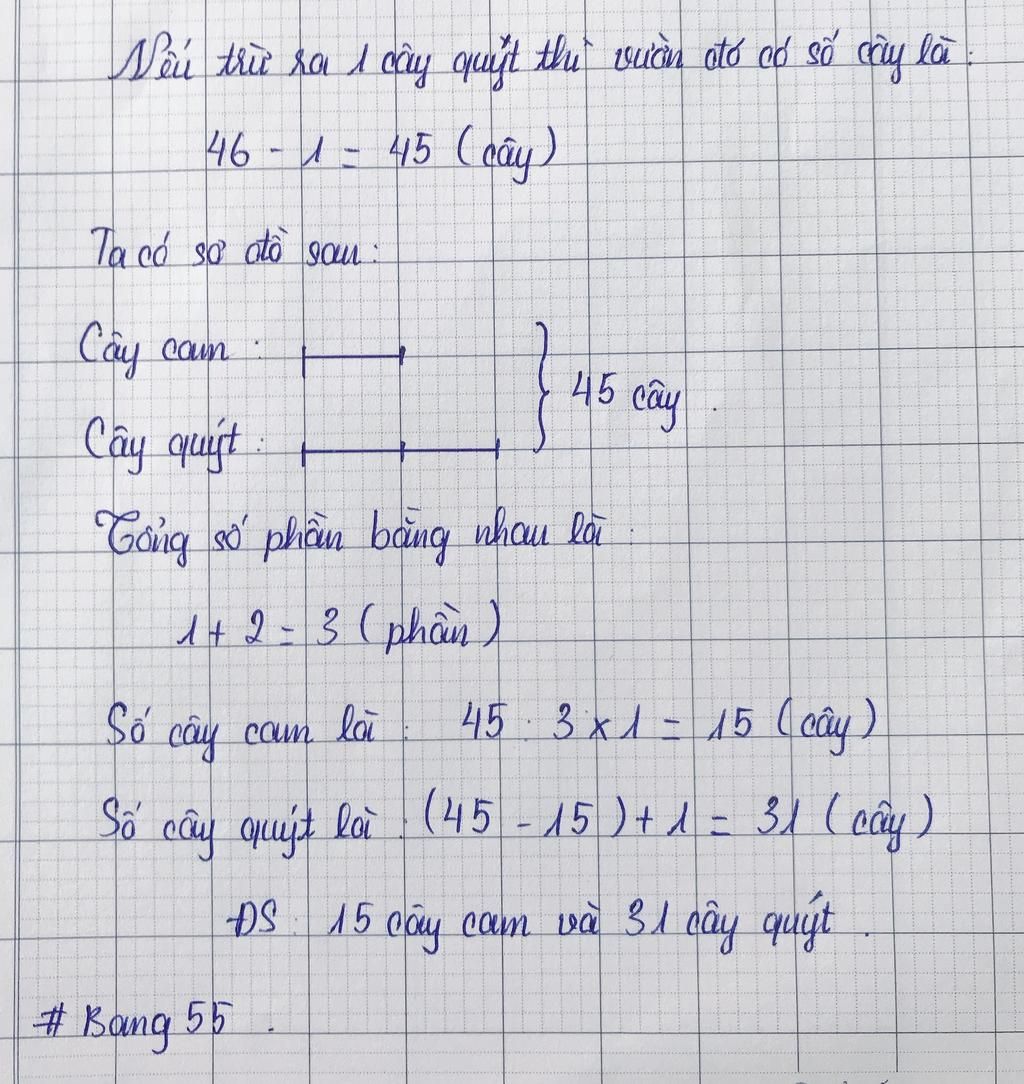 Nếu trừ ra 1 cây quýt thì vườn đó có số cây là:
46 - 1 = 45 (cây)
Ta có sơ đồ sau:
Cây cam :
45 cây.
Cây quýt :
Tổng số phần bằng nhau là:
1 + 2 = 3 (phần)
Số cây cam là : 45 : 3 x 1 = 15 (cây)
Số cây quýt là : (45 - 15) + 1 = 31 (cây)
ĐS : 15 cây cam và 31 cây quýt.
# Bang 55.